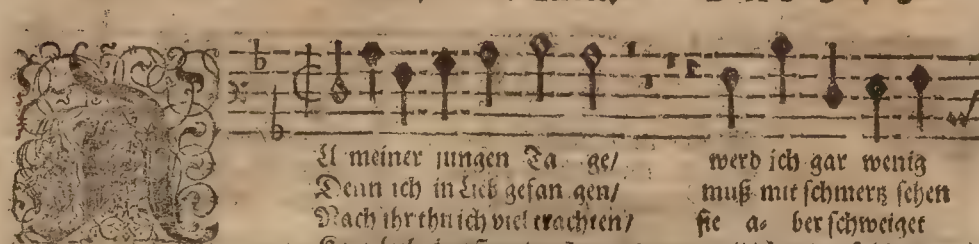 U meiner jungen Ta ge/ werd ich gar wenig
Denn ich in Lieb gefan gen/ muß mit schmertz sehen
Nach ihr thu ich viel trachten/ sie a- ber schweiget